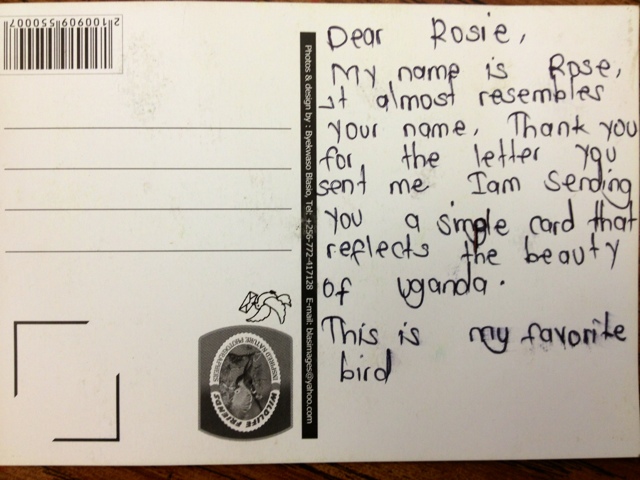 Dear Rosie,
My name is Rose,
it almost resembles
your name. Thank you
for the letter you
sent me Iam Sending
you a simple card that
reflects the beauty
of Uganda.
This is my favorite
bird
Photos & design by : Byekwaso Blasio, Tel: +256-772-417128 E-mail: blasimages@yahoo.com
2100909550007
WILDLIFE FRIENDS
INSPIRED NATURE PHOTOGRAPHERS